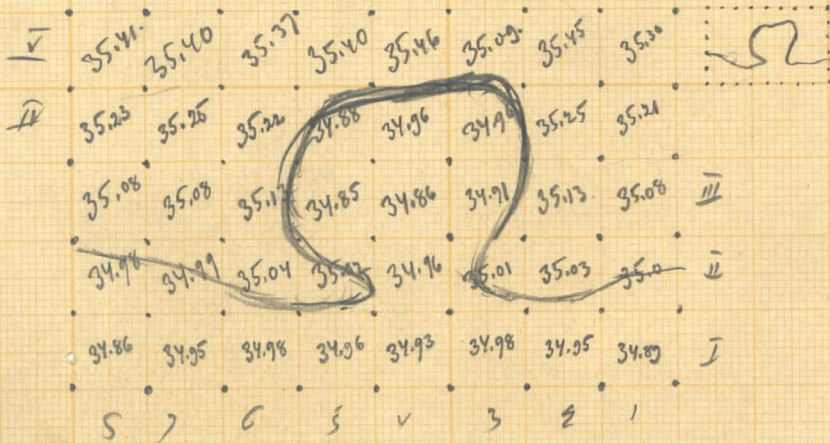 V 35.41 35.40 35.37 35.40 35.46 35.09 35.45 35.30
IV 35.23 35.25 35.22 34.88 34.96 34.96 35.25 35.21
35.08 35.08 35.13 34.85 34.86 34.91 35.13 35.08 III
34.98 34.99 35.04 34.96 35.01 35.03 35.0 II
34.86 34.95 34.98 34.96 34.93 34.98 34.95 34.89 I
8 7 6 5 4 3 2 1